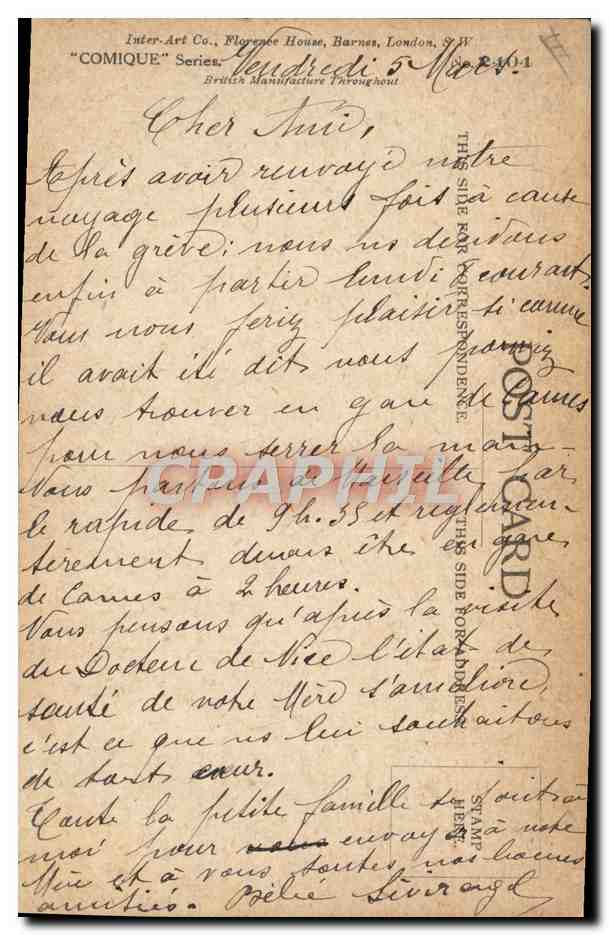 Inter-Art Co., Florence House, Barnes, London, S.W
"COMIQUE" Series. No. 2101
British Manufacture Throughout
Vendredi 5 Mars.
Cher Ami,
Après avoir renvoyé notre
voyage plusieurs fois à cause
de la grève; nous ns decidons
enfin à partir lundi 8 courant.
Vous nous feriez plaisir si comme
il avait été dit vous pouviez
vous trouver en gare de Cannes
pour nous serrer la main -
Nous partons de Marseille par
le rapide de 9h.35 et reglemen-
tairement devons être en gare
de Cannes à 2 heures.
Nous pensons qu'après la visite
du Docteur de Nice l'état de
santé de votre Mère s'améliore,
c'est ce que ns lui souhaitons
de tout cœur.
Toute la petite famille se joint à
moi pour envoyer à votre
Mère et à vous toutes nos bonnes
amitiés.
THIS SIDE FOR CORRESPONDENCE.
POST CARD
THIS SIDE FOR ADDRESS
STAMP
HERE.
CPARPHIL